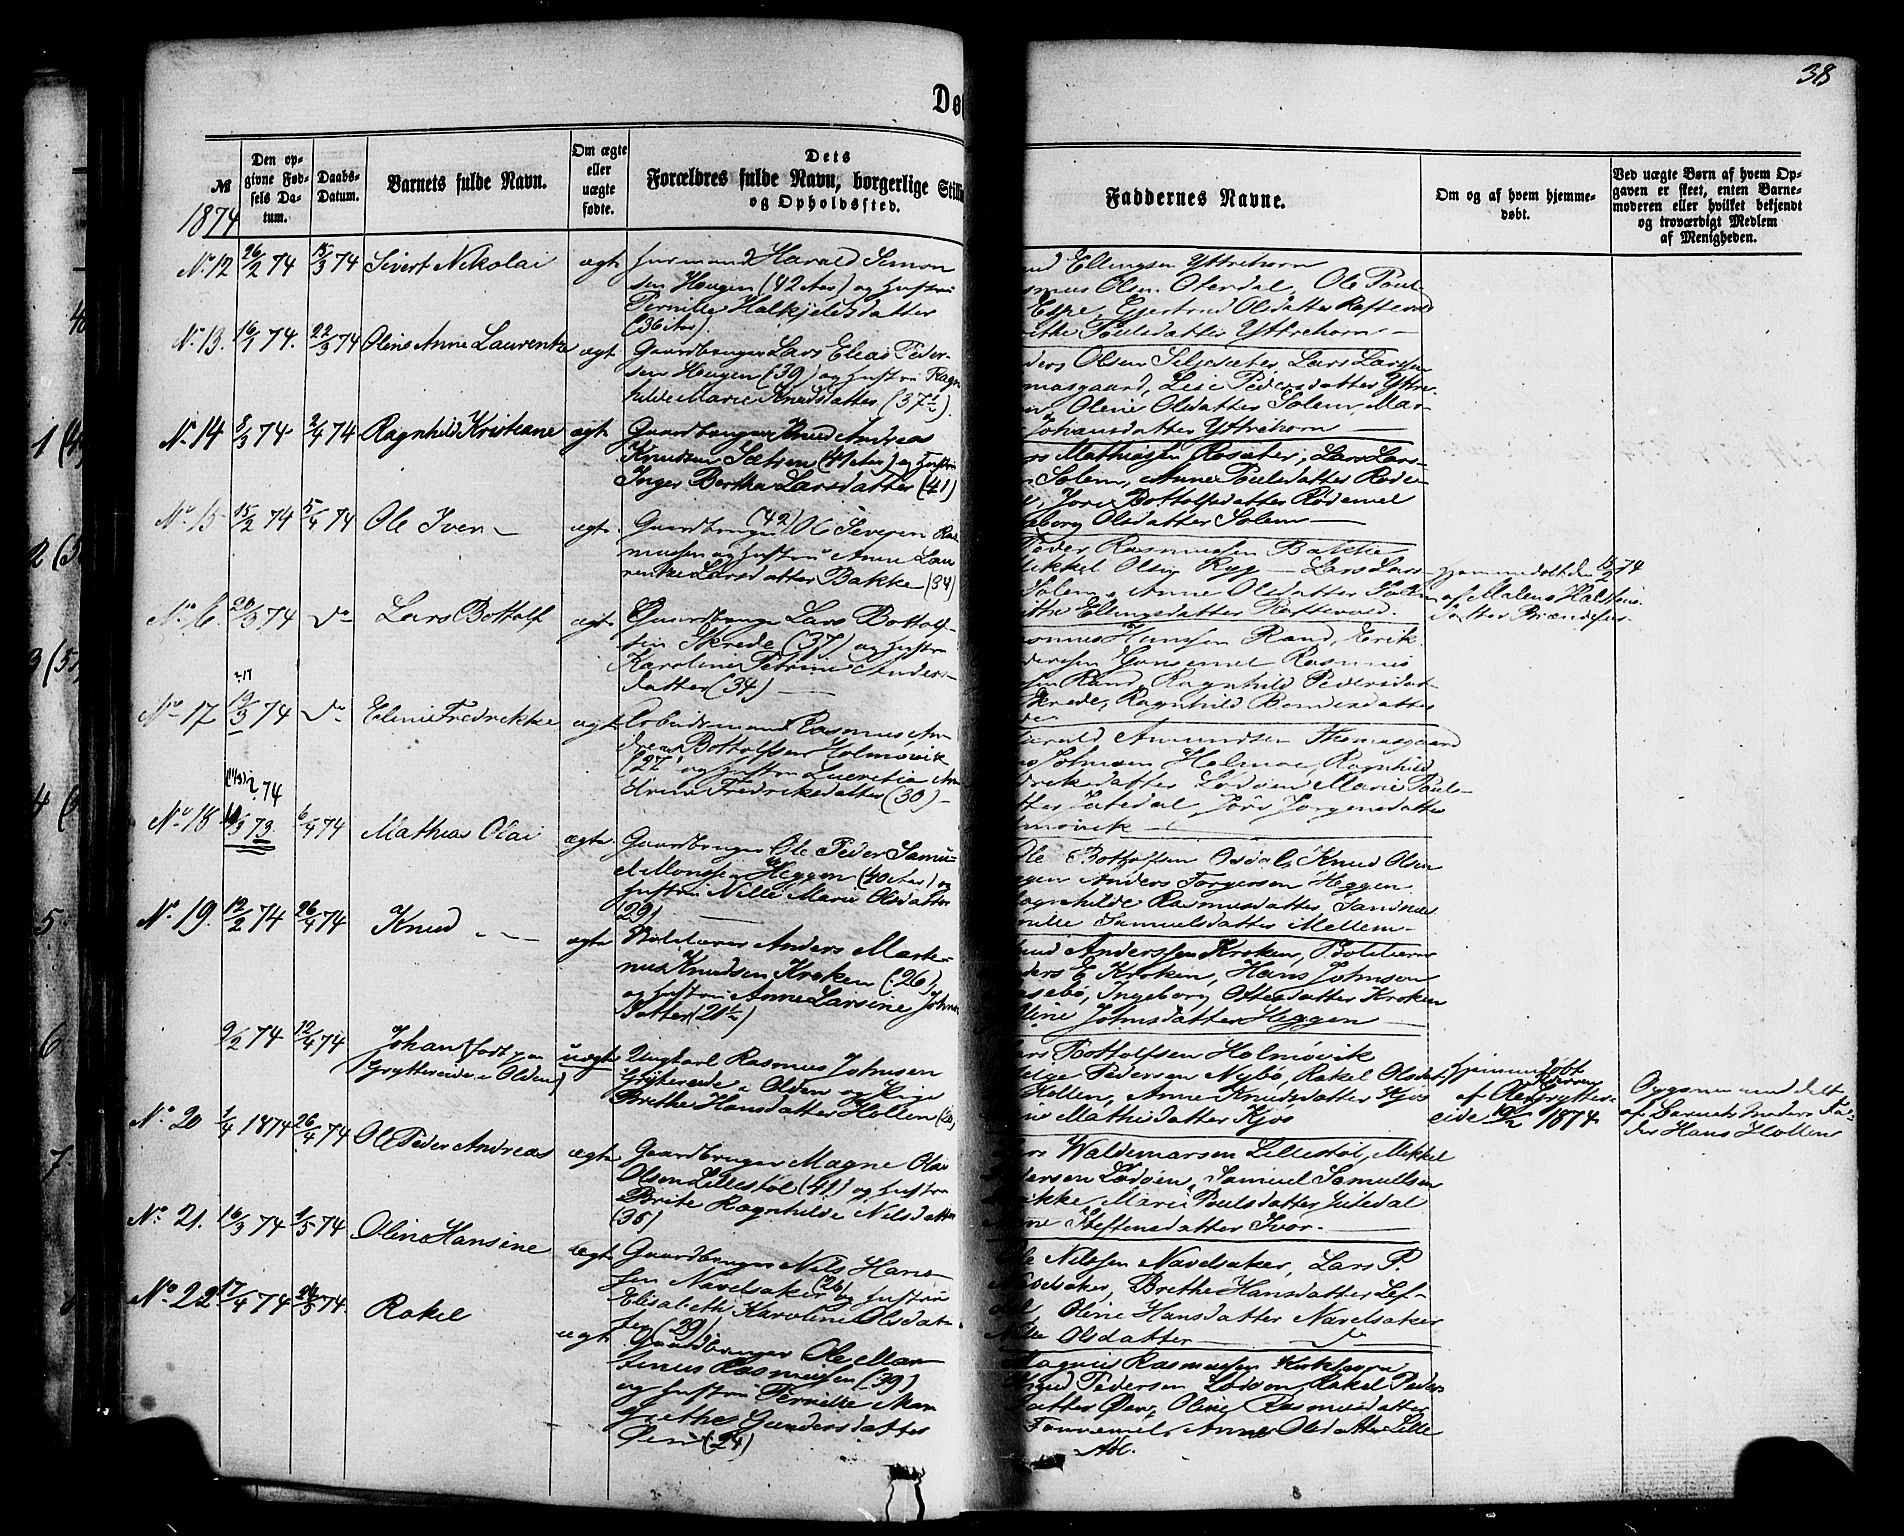 38
Dø
№
1874
Den op-
givne Fød-
sels Da-
tum.
Daabs-
Datum.
Barnets fulde Navn.
Om ægte
eller
uægte
fødte.
Dets
Forældres fulde Navn, borgerlige Still
og Opholdssted.
Faddernes Navne.
Om og af hvem hjemme-
døbt.
Ved uægte Børn af hvem Op-
gaven er skeet, enten Barne-
moderen eller hvilket bekjendt
og troværdigt Medlem
af Menigheden.
No 12 26/2 74 15/3 74 Sivert Nikolai ægte Huusmand Harald Simon
sen Hougen (42 Aar) og Hustru
Pernille Halkjeldsdatter
(36 Aar).
nd Ellingsen Yttrehorn
smus Olsen Oterdal, Ole Poul
Espe, Gjertrud Olsdatter Raftevold
ethe Poulsdatter Yttrehorn
No 13. 16/1 74. 22/3 74 Oline Anne Laurentze ægt. Gaardbruger Lars Elias Peder-
sen Hougen (39) og Hustru Ragn
hilde Marie Knudsdatter (37½).
ders Olsen Seljesæter, Lars Larsen
masgaard, Lise Pedersdatter Yttre
Oline Olsdatter Solem, Mar-
Johansdatter Yttrehorn
No 14 8/3 74 2/4 74 Ragnhild Kristiane ægte Gaardbruger Knud Andreas
Knudsen Sætren (41 Aar) og Hustru
Inger Bertha Larsdatter (41)
rs Mathiasen Rosæter, Lars Lars-
Solem, Anne Poulsdatter Røde-
Jori Bottolfsdatter Rødemel
geborg Olsdatter Solem
No 15 15/2 74 5/4 74 Ole Iver ægte Gaardbruger (42) Ole Severin Ras
mussen og Hustru Anne Lau
rentze Larsdatter Bakke (34)
Peder Rasmussen Bakke
Mikkel Olsen Ryg Lars Lars-
Solem, Anne Olsdatter Solem
ithe Ellingsdatter Raftevold.
hjemmedøbt den 15/2 74
af Malene Halstens
datter Brændefur
No 16. 20/3 74 do Lars Bottolf ægte Gaardbruger Lars Bottolf-
sen Skrede (37) og Hustru
Karoline Petrine Anders-
datter (34)
smus Hanssen Rand, Erik
dersen Gausemel Rasmus
sen Rand, Ragnhild Pedersdat-
Skrede, Ragnhild Bendixdatter
No 17 19/3 74 do Eline Fredrikke ægt. Arbeidsmand Rasmus An-
dreas Bottolfsen Holmøvik
(27) og Hustru Lucretia Ama
Fredriksdatter (30)
Harald Amundsen Thomasgaard
Johnsen Holmøe, Ragnhild
driksdatter Lødøen Marie Pouls-
tter Jutedal Jori Jørgensdatter
lmøvik
No 18 73. 74 6/4 74 Mathias Olai ægte. Gaardbruger Ole Peder Samu-
el Monssen Heggen (40 Aar) og
Hustru Nille Marie Olsdatter
(29)
Ole Bottolfsen Osdal, Knud Olsen
ggen Anders Torgersen Heggen
Ragnhilde Rasmusdatter Sandnes
nille Samuelsdatter Mellem
No 19. 12/2 74 26/4 74 Knud ægte Boldterer Anders Marti-
nus Knudsen Kroken (26)
og Hustru Anne Larsine Johns
datter (21½)
Knud Anderssen Kroken, Boldterer
ders E Kroken, Hans Johnson
asebø, Ingeborg Ottesdatter Kroken
Oline Johnsdatter Heggen
9/2 74 12/4 74 Johan (født paa
Gryttereide i Olden) uægte Ungkarl Rasmus Johnsen
Gryttereide i Olden og Pige
Brithe Hansdatter Hollen (20)
ars Bottolfsen Holmøvik
elge Pedersen Nybø, Rakel Olsdat
Hollen, Anne Knudsdatter Kjøs
rie Mathisdatter Kjøs
hjemmedøbt
af Ole Gryttere-
eide 10/2 1874
Opgaven meddelt
af Barnets Moders Fa-
der Hans Hollen
No 20 1/4 1874 26/4 74 Ole Peder Andreas ægte Gaardbruger Magne Olai
Olsen Lillestøl (41) og Hustru
Brite Ragnhilde Nilsdatter
(35)
ars Waldemarsen Lillestøl, Mikkel
dersen Lødøen, Samuel Samuelsen
Marie Poulsdatter Jutedal
ne Steffensdatter Svor.
No 21. 16/3 74 1/5 74 Oline Hansine ægte Gaardbruger Nils Hans-
sen Navelsaker (26) og Hustru
Elisabeth Karoline Olsdat-
ter (29)
Ole Nilssen Navelsaker, Lars P.
Navelsaker, Brethe Hansdatter Lef-
dal, Oline Hansdatter Navelsaker
Nille Olsdatter do
No 22 17/4 74 24/5 74. Rakel ægt. Gaardbruger Ole Mar-
tinus Rasmussen (39)
og Hustru Pernille Mar
grethe Gundersdatter
Øen (24)
Magnus Rasmussen Kirkhorn
Knud Pedersen Lødøen, Rakel Peders
datter Øen, Oline Rasmusdatter
Tonnemel, Anne Olsdatter Lille
støl.